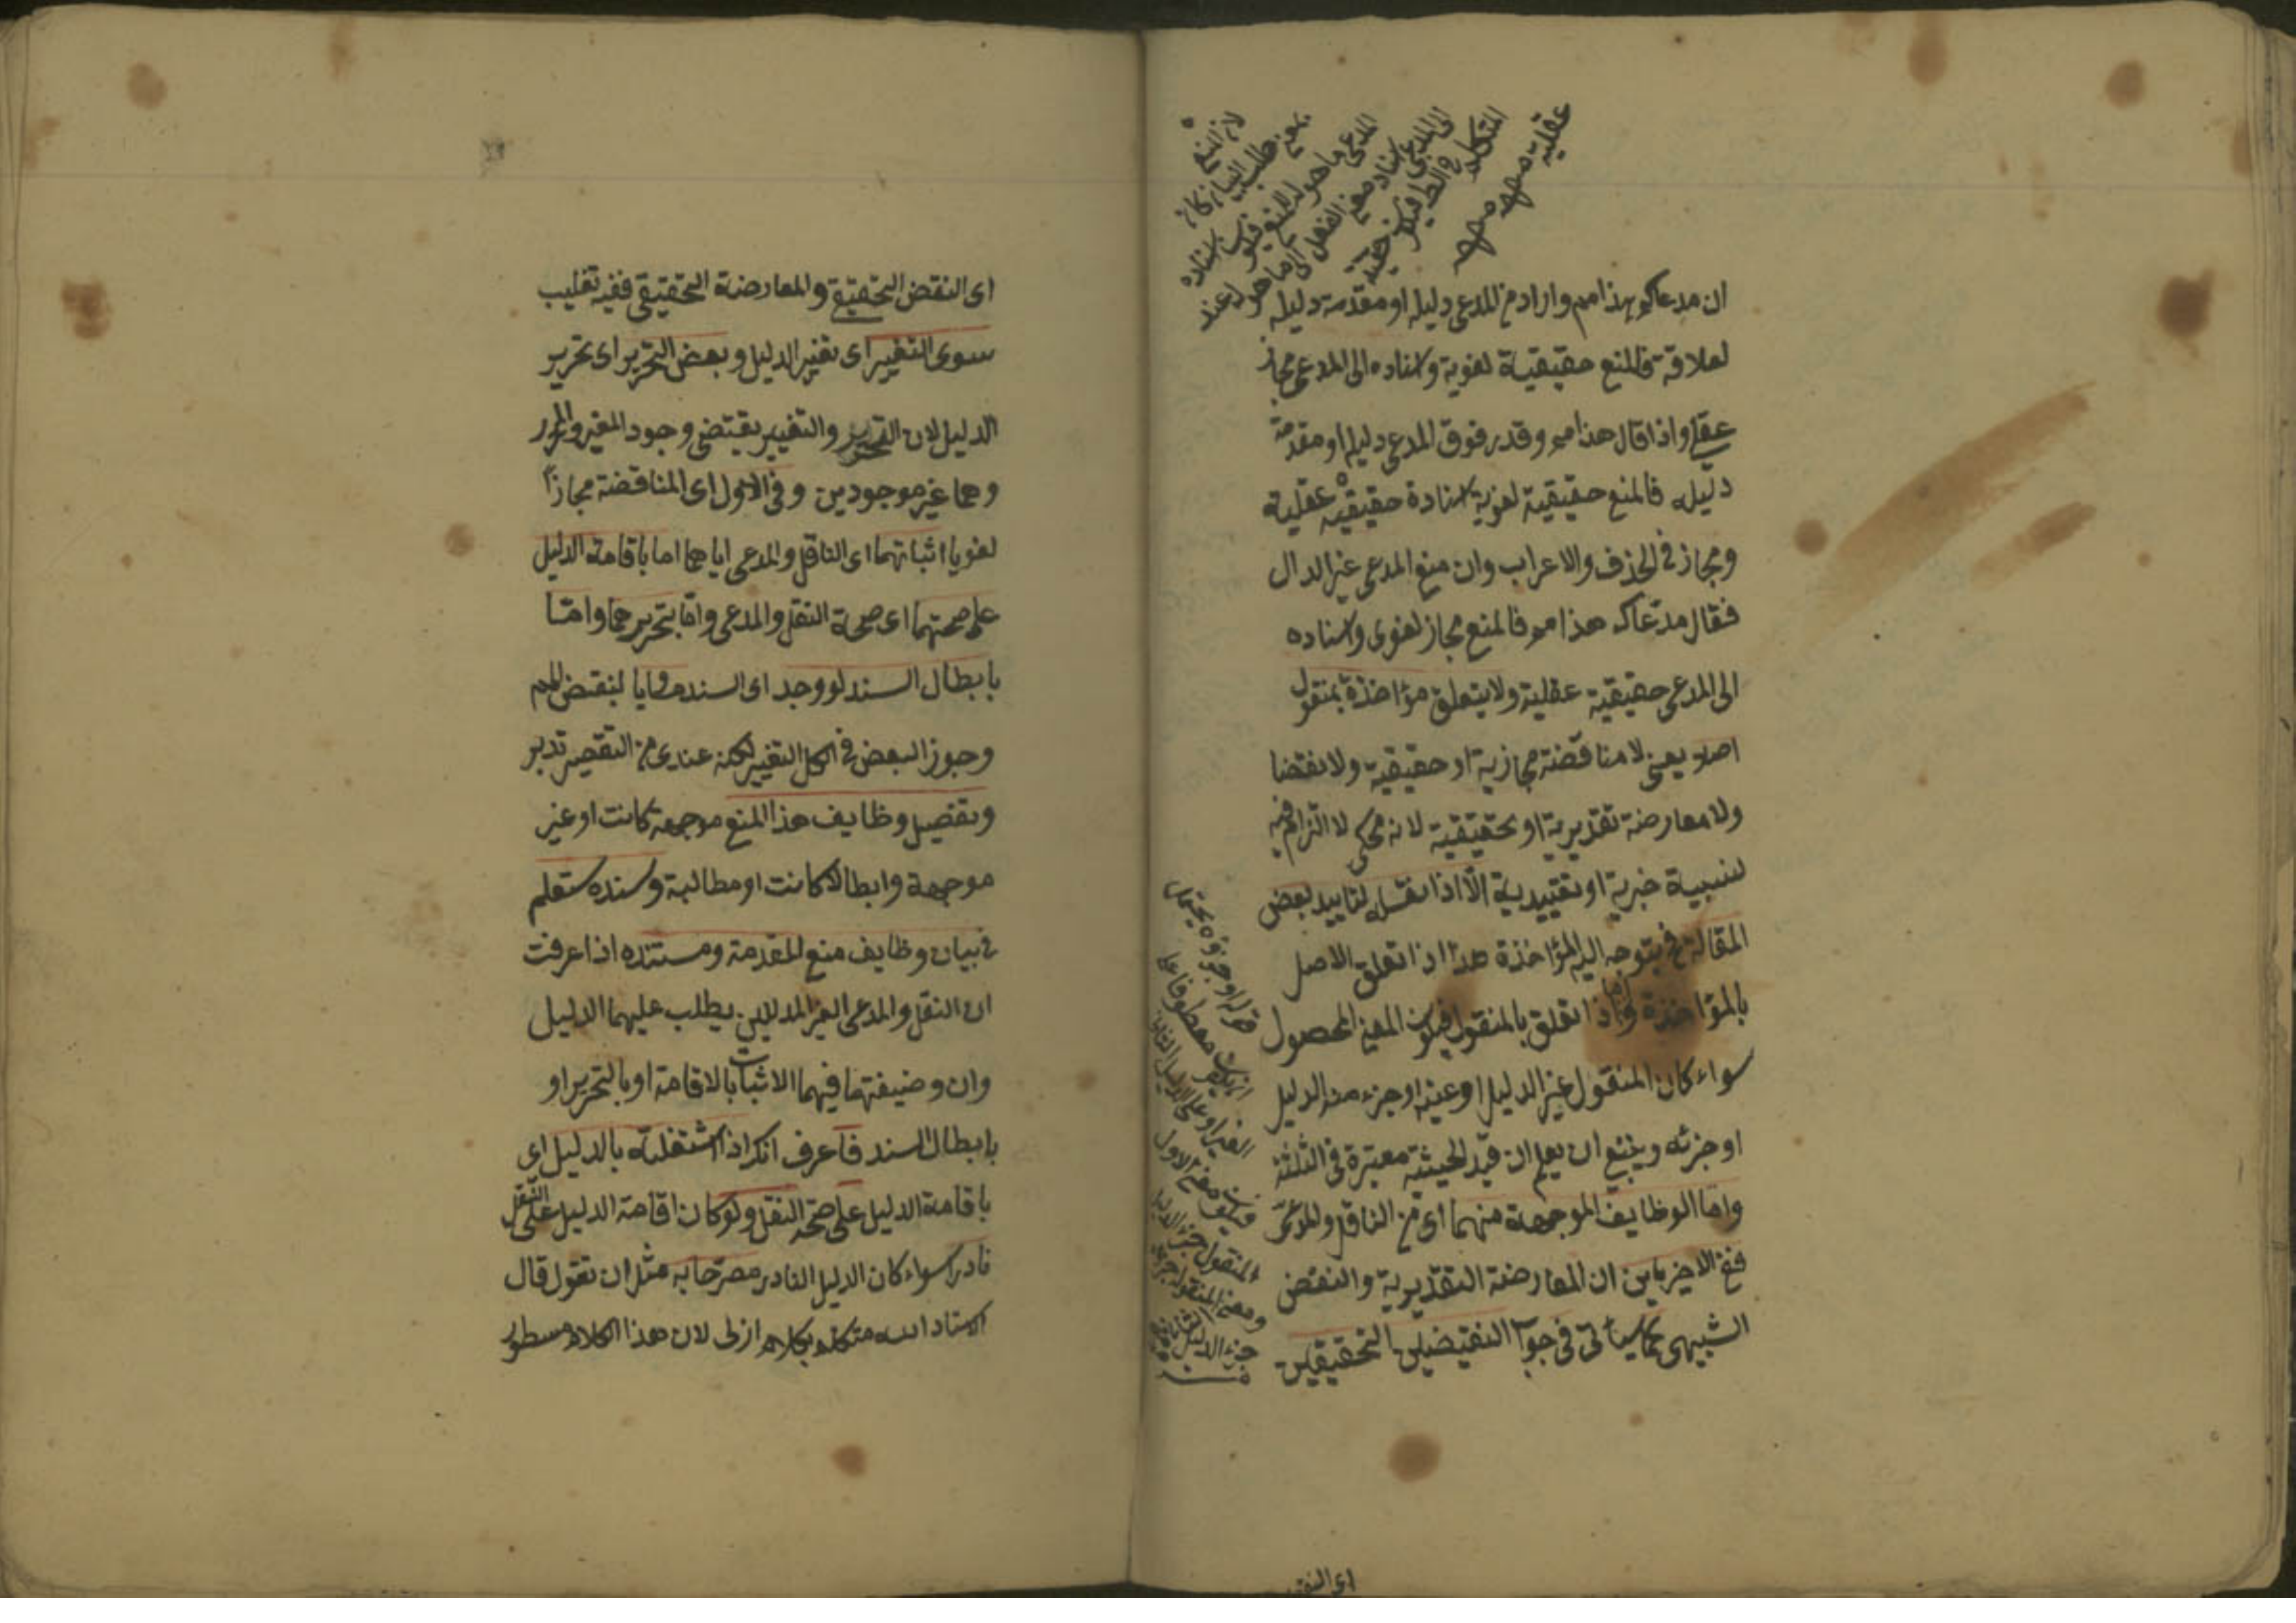 ان مدعاك هذا مم واراد من المدعى دليله او مقدمة دليله
لعلاقة فالمنع حقيقية لغوية واسناده الى المدعى مجاز
عقلى واذا قال هذا مم وقدر فوق المدعى دليله او مقدمة
دليله فالمنع حقيقية لغوية اسناده حقيقية عقلية
ومجاز فى الحذف والاعراب وان منع المدعى غير الدال
فقال مدعاك هذا مم فالمنع مجاز لغوى واسناده
الى المدعى حقيقية عقلية ولا يتعلق مؤاخذة بمنقول
اصلا يعنى لا مناقضة مجازية او حقيقية ولا نقضا
ولا معارضة تقديرية او تحقيقية لانه محكى لا التزام فيه
لنسبية خبرية او تقييدية الا اذا نقله لتاييد بعض
المقالة فح يتوجه اليه المؤاخذة هذا اذا تعلق الاصل
بالمؤاخذة واما اذا تعلق بالمنقول فيكون المعنى المحصول
سواء كان المنقول غير الدليل او عينه او جزء من الدليل
او جزئه وينبغى ان يعلم ان قيد الحيثية معتبرة فى الثلثة
واما الوظايف الموجهة منهما اى من الناقل والمدعى
ففى الاخريين ان المعارضة التقديرية والنقض
الشبيهى كما سيأتى فى جواب النقيضين التحقيقين
لان المنع
بمعنى طلب البيان كان
المدعى ما هو له للمنع فيكون اسناده
الى المدعى اسناد معنى الفعل الى ما هو له عند
المتكلم فى الظاهر فيكون حقيقة
عقلية
قوله او جزؤه يحتمل
ان يكون معطوفا على
الغير او على الدليل الثانى
فيكون معنى الاول
المنقول جزء الدليل
ومعنى المنقول جزء
جزء الدليل
اى النقض
اى النقض التحقيقى والمعارضة التحقيقى ففيه تغليب
سوى التغيير اى تغيير الدليل وبعض التحرير اى تحرير
الدليل لان التحرير والتغيير يقتضى وجود المغير والمحرر
وهما غير موجودين وفى الاول اى المناقضة مجازا
لغويا اثباتهما اى الناقل والمدعى اياهما اما باقامة الدليل
على صحتهما اى صحة النقل والمدعى واما بتحريرهما واما
بابطال السند لو وجد اى السند مساويا لنقيض المم
وجوز البعض فى الكل التغيير لكنه عندى من التقصير تدبر
وتفصيل وظايف هذا المنع موجهة كانت او غير
موجهة وابطالا كانت او مطالبة وسنده ستعلم
فى بيان وظايف منع المقدمة ومستنده اذا عرفت
ان النقل والمدعى الغير المدللين يطلب عليهما الدليل
وان وضيفتهما فيهما الاثبات بالاقامة او بالتحرير او
بابطال السند فاعرف انك اذا اشتغلت بالدليل اى
باقامة الدليل على صحة النقل ولو كان اقامة الدليل على النقل
نادرا سواء كان الدليل النادر مصرحا به مثل ان تقول قال
الاستاد الله متكلم بكلام ازلى لان هذا الكلام مسطور